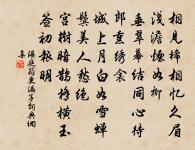 相見稀相憶久眉
淺澹煙如柳
垂翠幕結同心待
郎熏繡衾
城上月白如雪蟬
鬢美人愁絕
宮樹暗鵲橋橫玉
簽初報明
溫庭筠更漏子詞典網
集